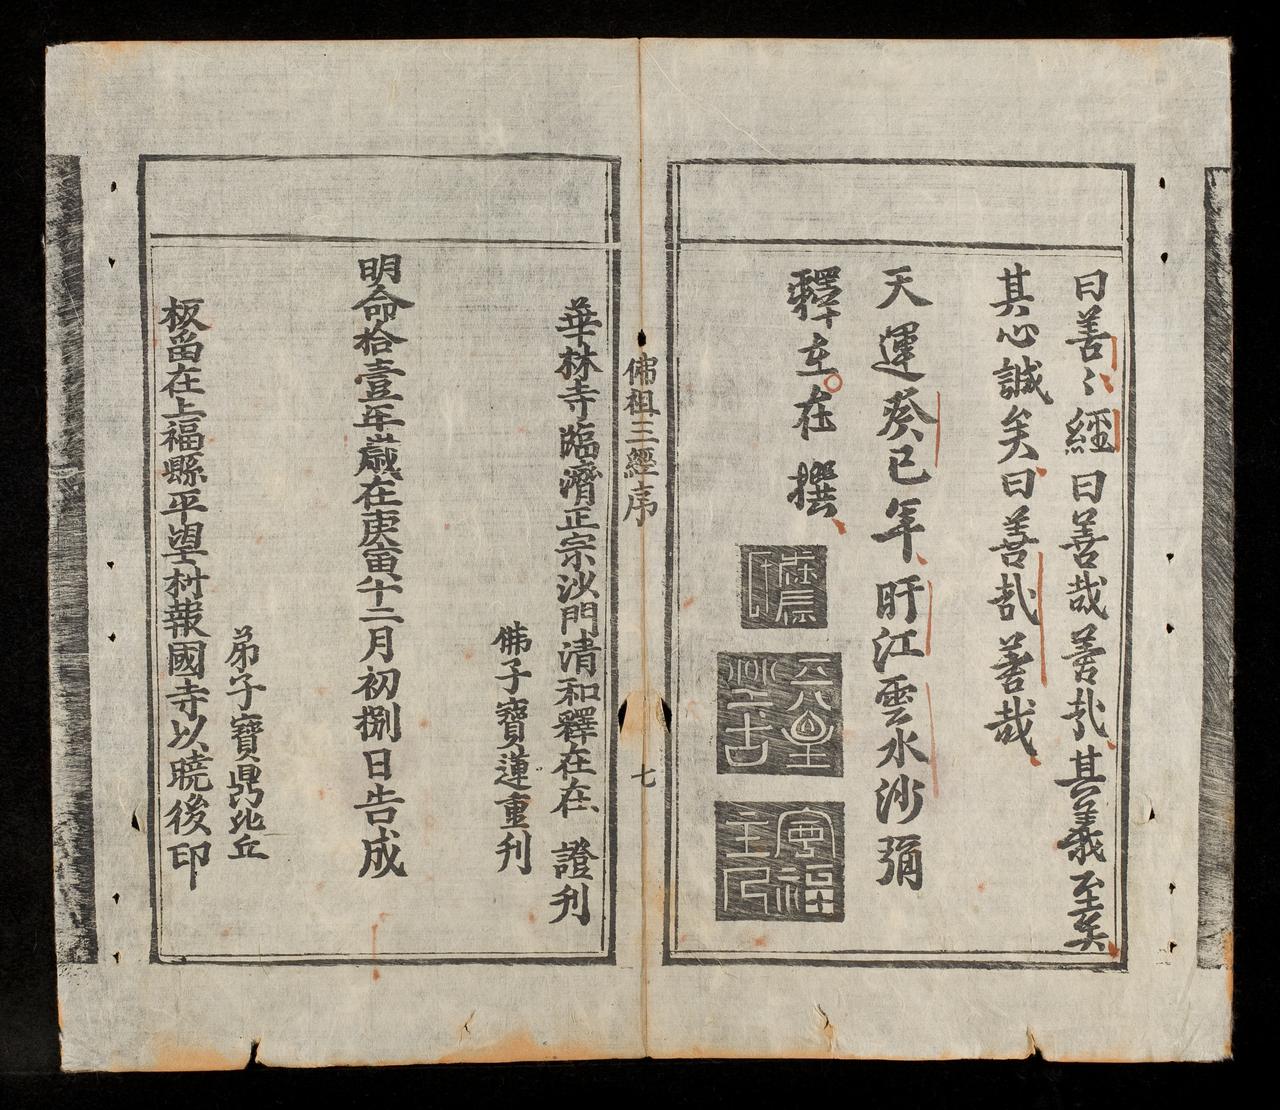 曰善〻經曰善哉善哉其義至矣
其心誠矣曰善哉善哉
天運癸巳年旴江雲水沙彌
釋在在撰
佛祖三經序
七
華林寺臨濟正宗沙門清和釋在在 證刊
佛子寶蓮重刊
明命拾壹年歲在庚寅十二月初捌日告成
弟子寶鼎比丘
板畱在上福縣平望村報國寺以曉後印